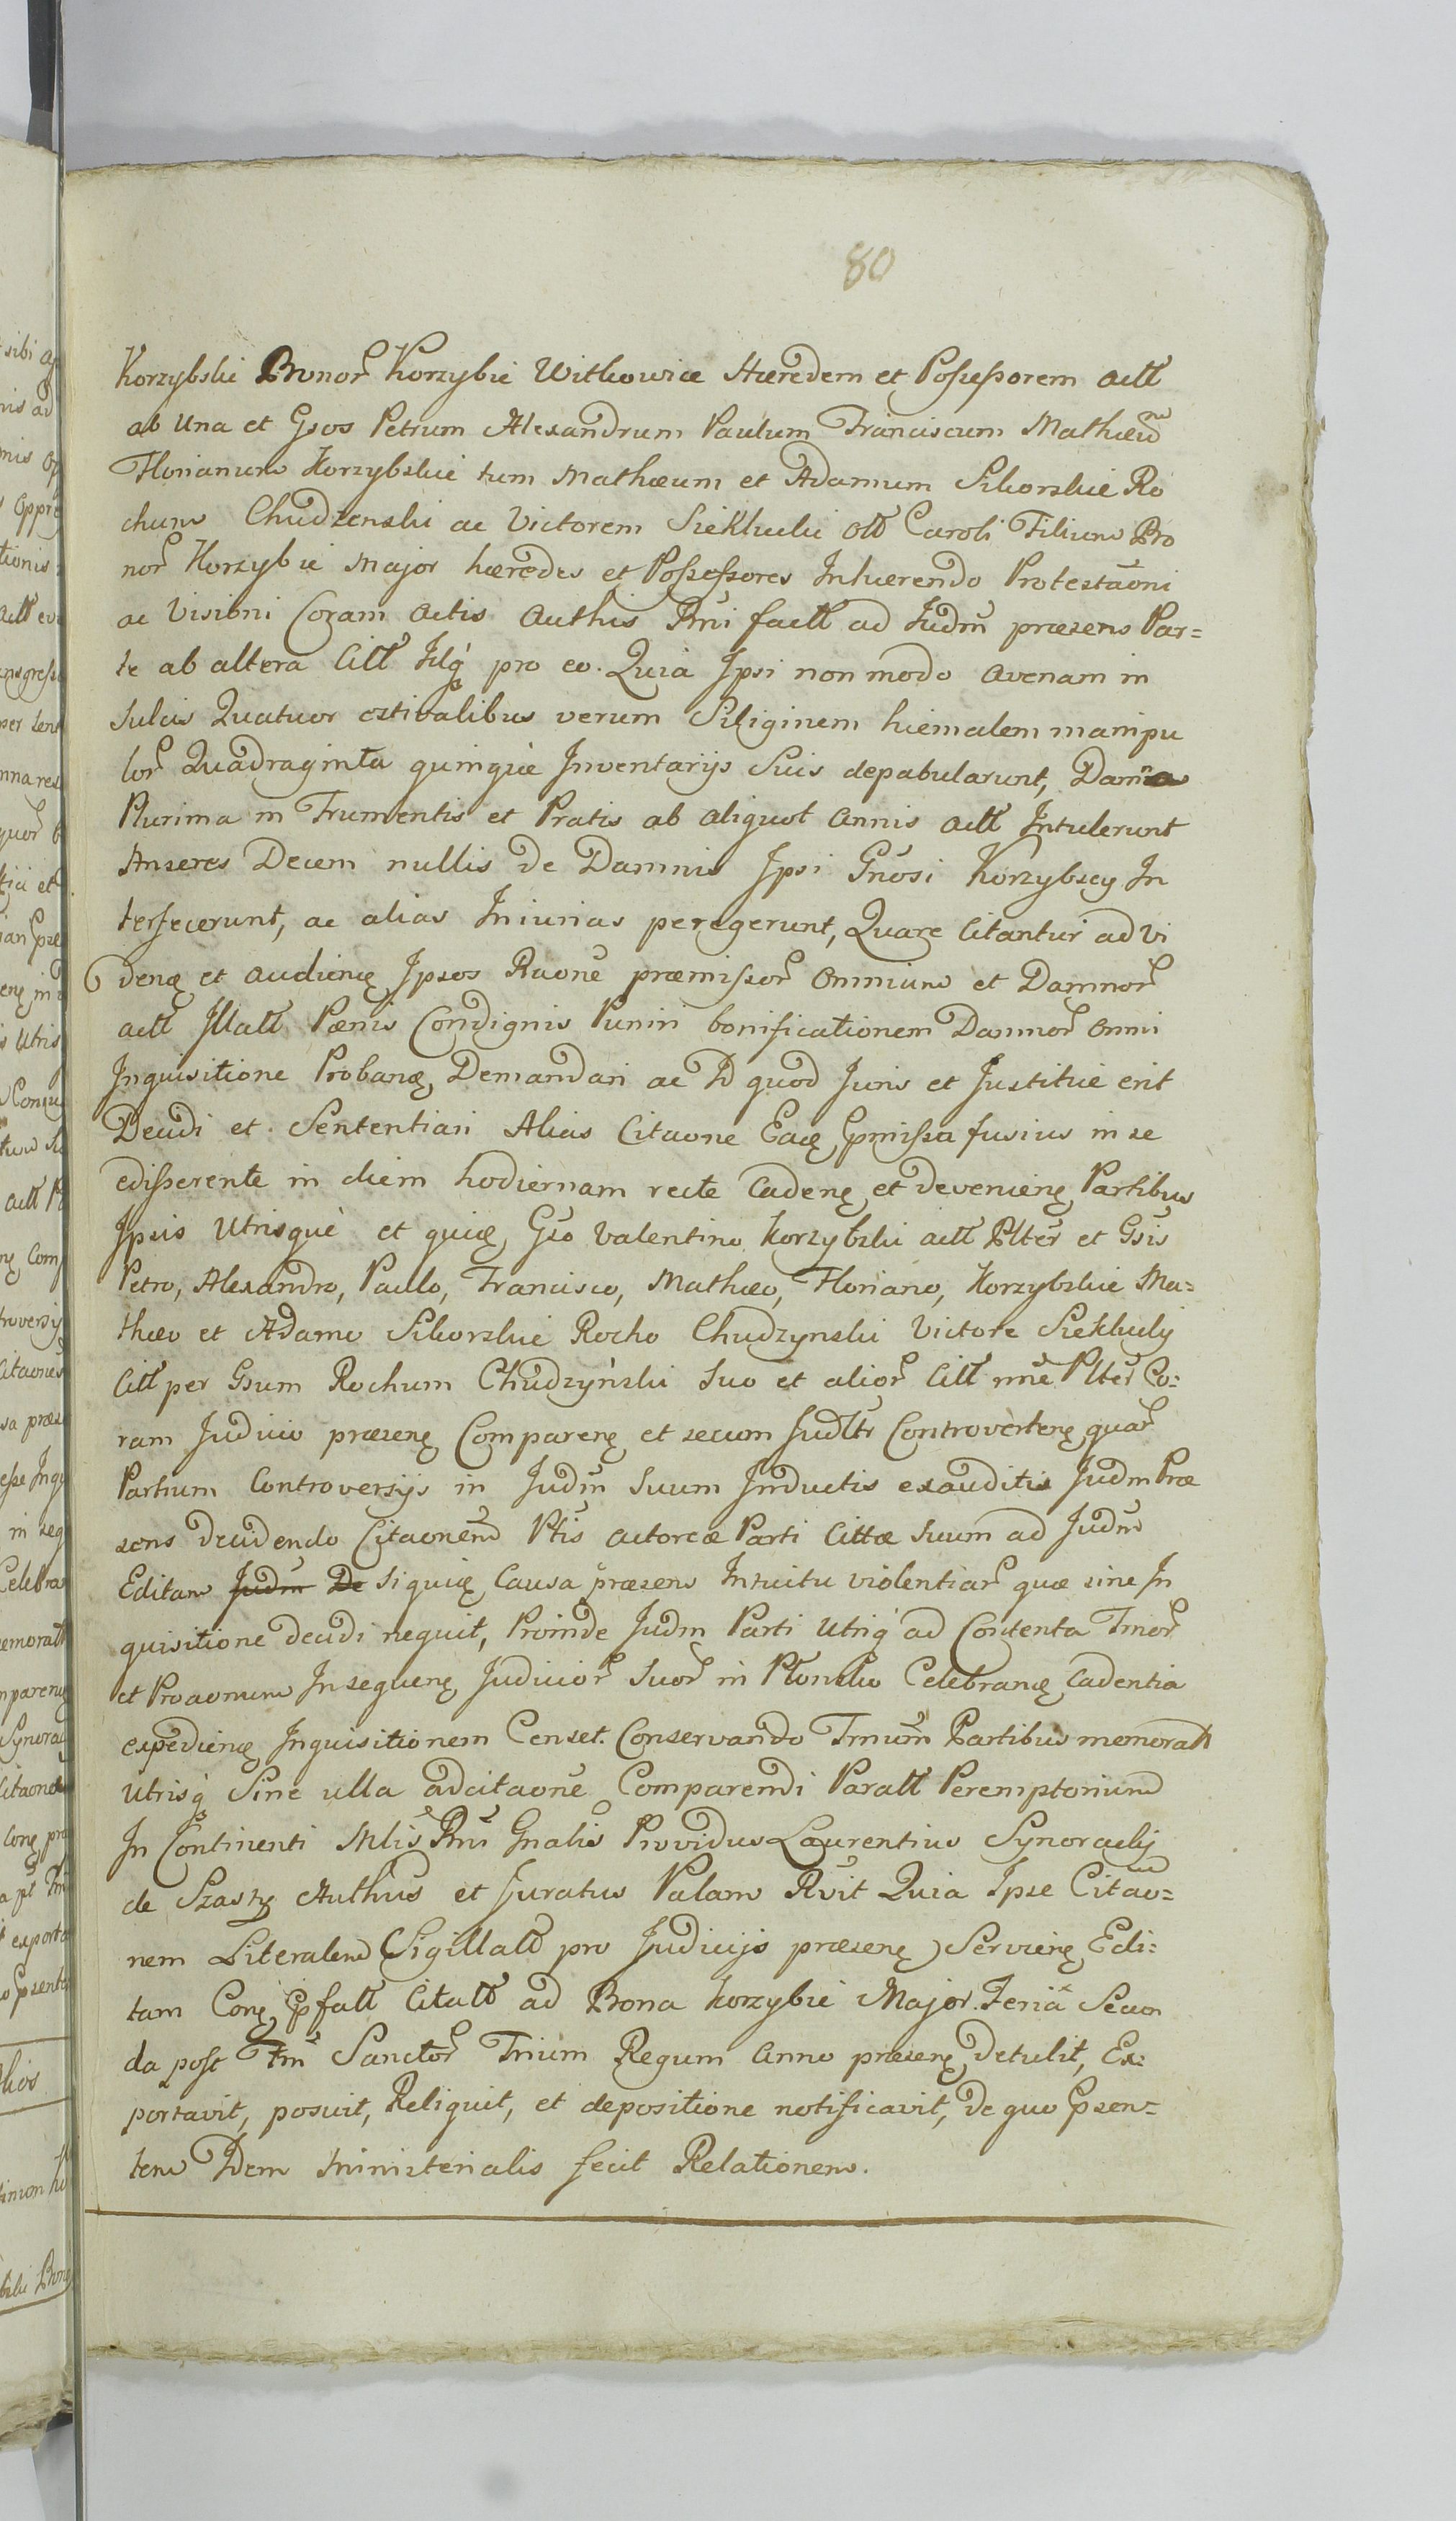 80
Korzybski Bonor Korzybie Witkowice Hæredem et Possessorem actt
ab Una et Gsos Petrum Alexandrum Paulum Franciscum Mathæum
Florianum Korzybskie tum Mathæum et Adamum Sikorskie Ro
chum Chudzenski ac Victorem Siekłucki Olt Caroli Filium Bo
nor Korzybie Major hæredes et Possessores Inhærendo Protestaoni
ac Visioni Coram Actis Authis Pnui factt ad Judm præsens Par=
te ab altera Citt Idq pro eo. Quia Ipsi non modo avenam in
Sulcis Quatuor æstivalibus verum Siliginem hiemalem manipu
lor Quadraginta quinque Inventarijs Suis depabularunt, Damna
Plurima in Frumentis et Pratis ab aliquot Annis actt Intulerunt
Anseres Decem nullis de Damnis Ipsi Gnosi Korzybscy In
terfecerunt, ac alias Iniurias peregerunt, Quare Citantur ad Vi
denę et audienę Ipsos Raone præmissor Omnium et Damnor
actt Illatt Pænis Condignis Puniri bonificationem Damnor omni
Inquisitione Probanę, Demandari ac Id quod Juris et Justitiæ erit
Decidi et Sententiari Alias Citaone Eacę pmissa fusius in se
edisserente in diem hodiernam recte Cadenę et devenienę Partibus
Ipsis Utrisque et quidę Gso Valentino Korzybski actt Plter et Gsis
Petro, Alexandro, Paulo, Francisco, Mathæo, Floriano, Korzybskie Ma=
thæo et Adamo Sikorskie Rocho Chudzynski Victore Siekłucky
Citt per Gsum Rochum Chudzyński Suo et alior Citt nne Plter Co=
ram Judicio præsenę Comparenę et secum Judltr Controvertenę quar
Partium Controversijs in Judm Suum Inductis exauditis Judm Præ
sens decidendo Citaonem Ptis Actoreæ Parti Cittæ Suum ad Judm
Editam Judm De Siquidę Causa præsens Intuitu violentiar quæ sine In
quisitione decidi nequit, Proinde Judm Parti Utriq ad Contenta Tmor
et Proaonum Insequenę Judicior Suor in Płonsko Celebranę Cadentia
expedienę Inquisitionem Censet. Conservando Tmum Partibus memoratt
Utrisq Sine ulla adcitaone Comparendi Paratt Peremptorium
In Continenti Mlis Rni Gnalis Providus Laurentius Synoracky
de Szasty Authus et Juratus Palam Rvit Quia Ipse Citao=
nem Literalem Sigillatt pro Judicijs præsenę Servienę Edi=
tam Conę pfatt Citatt ad Bona Korzybie Major. Feria Secun
da post Fm Sanctor Trium Regum Anno præsenę detulit, Ex=
portavit, posuit, Reliquit, et depositione notificavit, De quo psen=
tem Idem Ministerialis fecit Relationem.